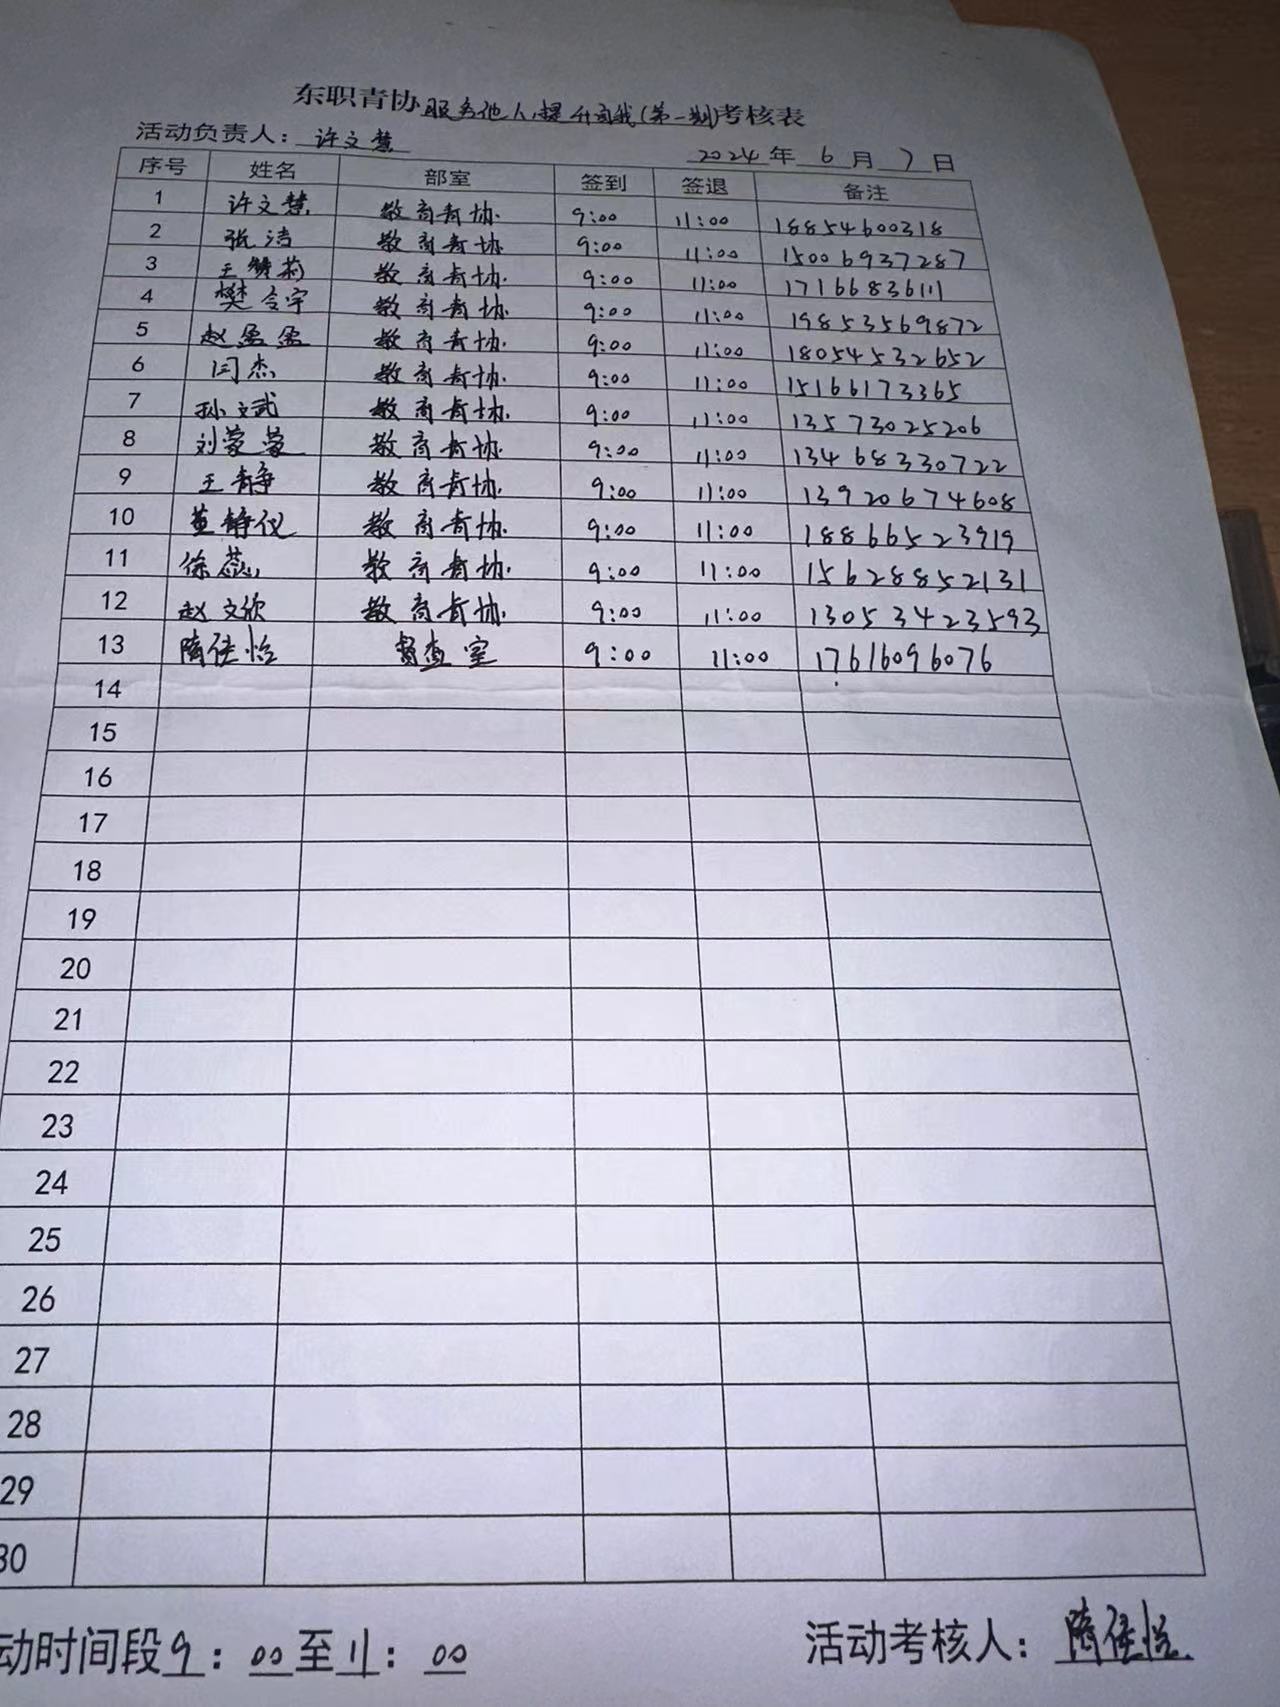 东职青协服务他人,提升自我(第一期)考核表
活动负责人：许文慧 2024年6月7日
序号 姓名 部室 签到 签退 备注
1 许文慧 教育青协 9:00 11:00 18854600318
2 张洁 教育青协 9:00 11:00 15006937287
3 王赞莉 教育青协 9:00 11:00 17166836111
4 樊令宇 教育青协 9:00 11:00 19853569872
5 赵盈盈 教育青协 9:00 11:00 18054532652
6 闫杰 教育青协 9:00 11:00 15166173365
7 孙文武 教育青协 9:00 11:00 13573025206
8 刘蒙蒙 教育青协 9:00 11:00 13468330722
9 王静 教育青协 9:00 11:00 13920674608
10 董静仪 教育青协 9:00 11:00 18866523919
11 徐蕊 教育青协 9:00 11:00 15628852131
12 赵文欣 教育青协 9:00 11:00 13053423593
13 隋佳怡 督查室 9:00 11:00 17616096076
14
15
16
17
18
19
20
21
22
23
24
25
26
27
28
29
30
动时间段9:00至11:00 活动考核人：隋佳怡